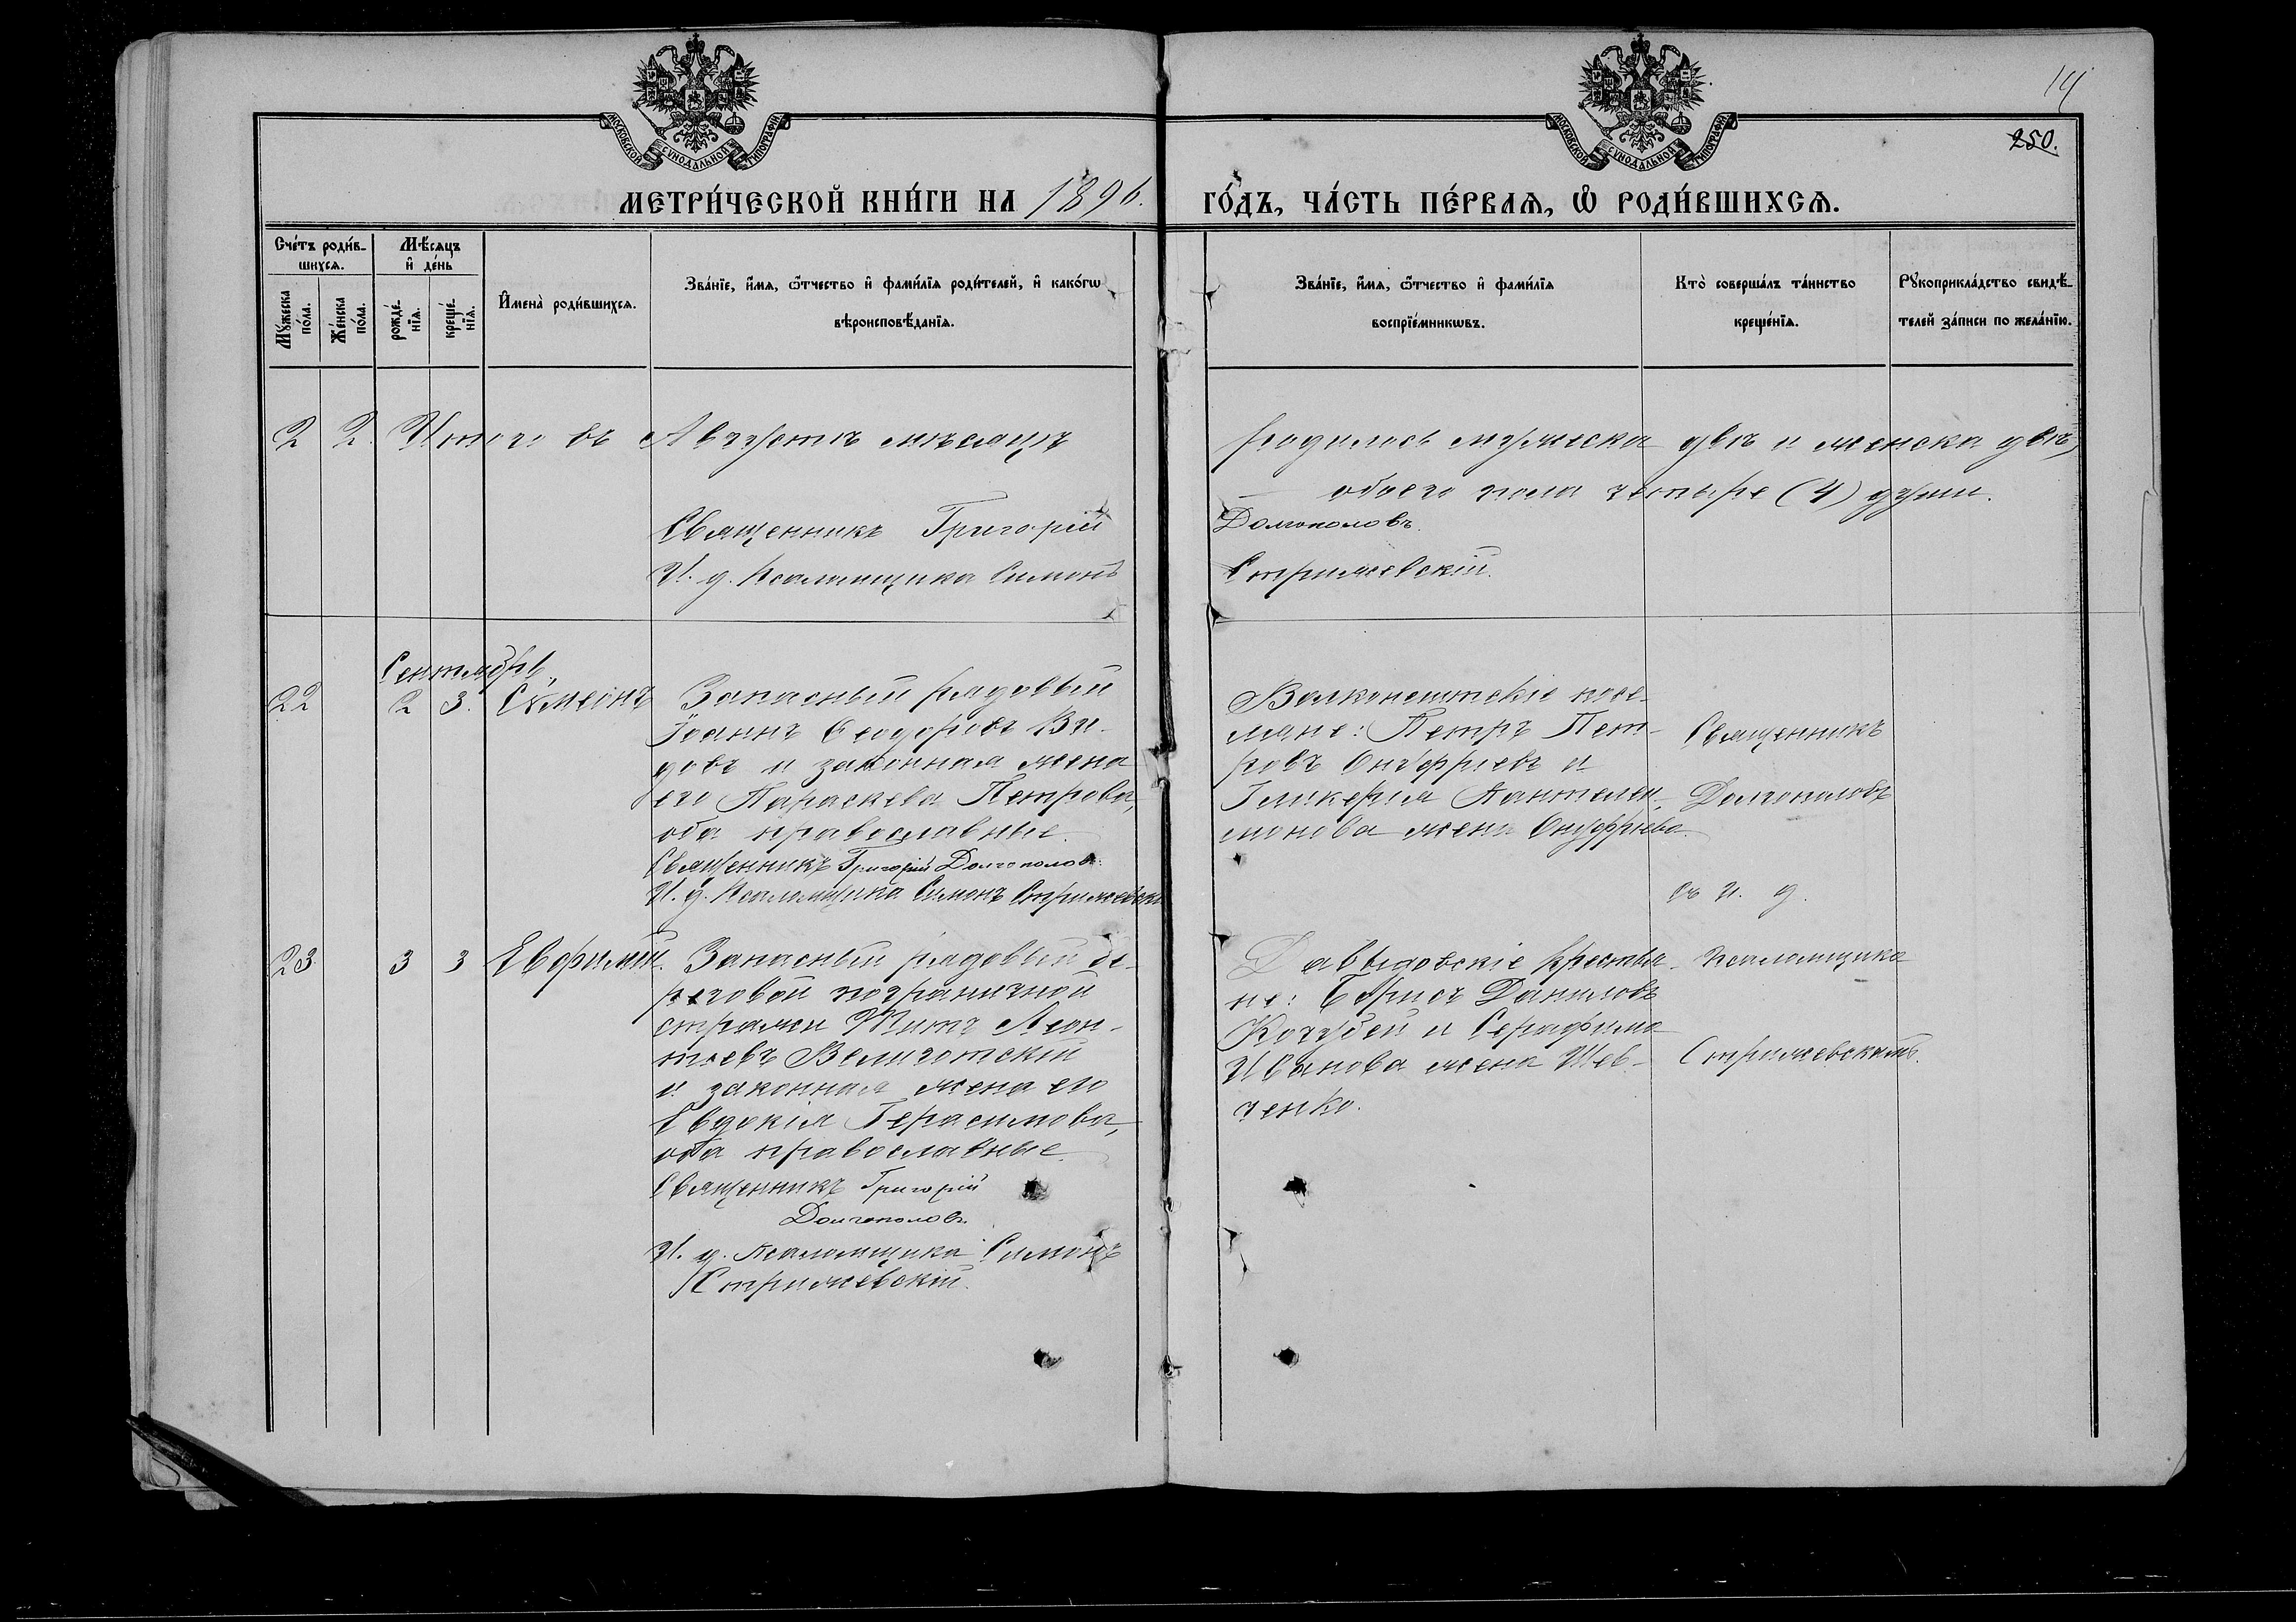 14
250.
МОСКОВСКОЙ СѴНОДАЛЬНОЙ ТИПОГРАФІИ
МОСКОВСКОЙ СѴНОДАЛЬНОЙ ТИПОГРАФІИ
МЕТРИ́ЧЕСКОЙ КНИ́ГИ НА 1896. ГО́ДЪ, ЧА́СТЬ ПЕ́РВАѦ, Ѽ РОДИ́ВШИХСѦ.
Сче́тъ роди́в-
шихсѧ.
Мꙋ́жеска по́ла.
Же́нска по́ла.
Мѣ́сѧцъ и҆ де́нь
рожде́нїѧ.
креще́нїѧ.
И҆мена̀ роди́вшихсѧ.
Зва́нїе, и҆́мѧ, ѻ҆́тчество и҆ фами́лїѧ роди́телей, и҆ како́гѡ
вѣроисповѣ́данїѧ.
Зва́нїе, и҆́мѧ, ѻ҆́тчество и҆ фами́лїѧ
воспрїе́мникѡвъ.
Кто̀ соверша́лъ та́инство
креще́нїѧ.
Рꙋкоприкла́дство свидѣ́-
телей за́писи по жела́нїю.
2 2. Итого въ Августѣ мѣсяцѣ родилось мужеска двѣ и женска двѣ,
обоего пола четыре (4) души.
Священникъ Григорій Долгополовъ.
И. д. Псаломщика Симонъ Стрижевскій.
Сентябрь,
22 2 3. Сѵмеонъ
Запасный рядовый
Іоаннъ Ѳеодоровъ Ви-
довъ и законная жена
его Параскева Петрова,
оба православные.
Священникъ Григорій Долгополовъ.
И. д. Псаломщика Симонъ Стрижевскі
Волконештскіе посе-
ляне: Петръ Пет-
ровъ Онуфріевъ и
Гликерія Пантелей-
монова жена Онуфріева.
Священникъ
Долгополовъ
съ и. д.
Псаломщика
Стрижевскимъ.
23 3 3 Евфимій.
Запасный рядовый бе-
реговой пограничной
стражи Титъ Леон-
тьевъ Велиготскій
и законная жена его
Евдокія Герасимова,
оба православные.
Священникъ Григорій
Долгополовъ.
И. д. Псаломщика Симонъ
Стрижевскій.
Давыдовскіе крестья-
не: Борисъ Даниловъ
Кочубей и Серафима
Иванова жена Шев-
ченко.